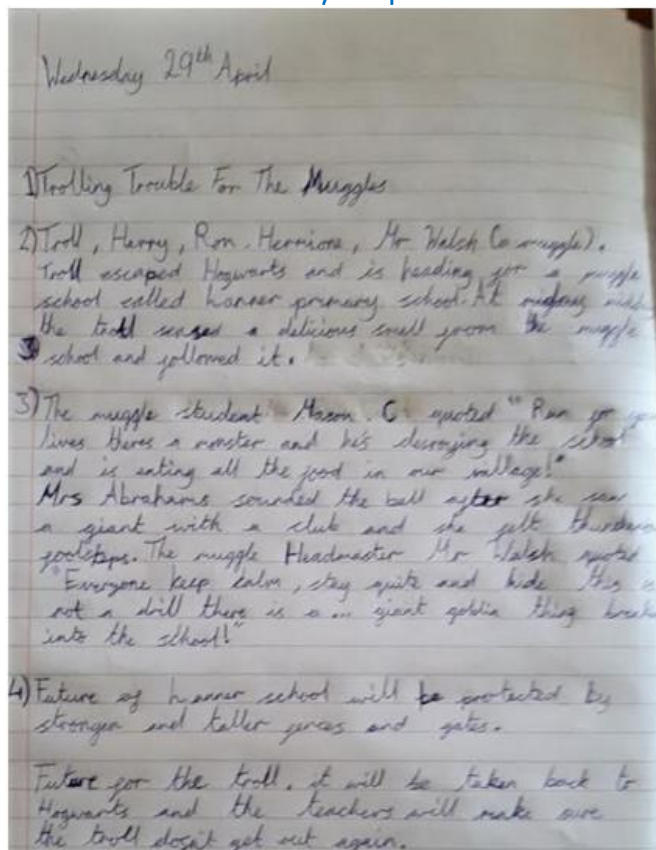 Wednesday 29th April
1) Trolling Trouble For The Muggles
2) Troll, Harry, Ron, Hermione, Mr Walsh (a muggle).
Troll escaped Hogwarts and is heading for a muggle
school called hanner primary school. At
the troll sensed a delicious smell from the muggle
school and followed it.
3) The muggle student Mason. C quoted "Run for
lives theres a monster and he's desroying the school
and is eating all the food in our village!"
Mrs Abrahams sounded the bell after she saw
a giant with a club and she felt
footsteps. The muggle Headmaster Mr Walsh quoted
"Everyone keep calm, stay quite and hide this is
not a drill there is a ... giant goblin thing
into the school!"
4) Future of hanner school will be protected by
stronger and taller fences and gates.
Future for the troll. it will be taken back to
Hogwarts and the teachers will make sure
the troll dosn't get out again.